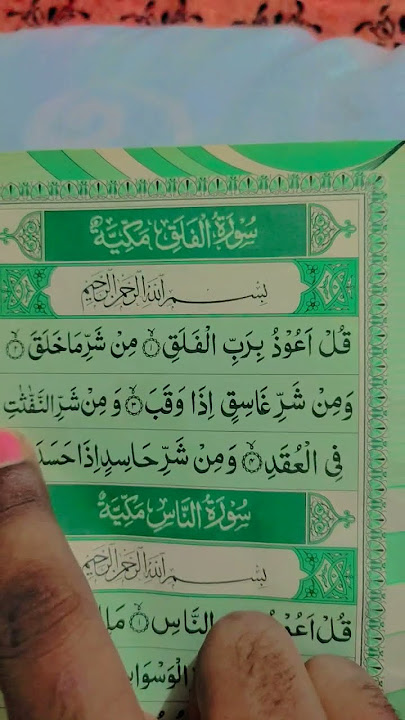 سُوْرَةُ الْفَلَقِ مَكِّيَّةٌ
بِسْمِ اللّٰهِ الرَّحْمٰنِ الرَّحِيْمِ
قُلْ اَعُوْذُ بِرَبِّ الْفَلَقِ ۝١ مِنْ شَرِّ مَا خَلَقَ ۝٢
وَمِنْ شَرِّ غَاسِقٍ اِذَا وَقَبَ ۝٣ وَمِنْ شَرِّ النَّفّٰثٰتِ
فِي الْعُقَدِ ۝٤ وَمِنْ شَرِّ حَاسِدٍ اِذَا حَسَدَ
سُوْرَةُ النَّاسِ مَكِّيَّةٌ
بِسْمِ اللّٰهِ الرَّحْمٰنِ الرَّحِيْمِ
قُلْ اَعُوْذُ النَّاسِ ۝١
الْوَسْوَاسِ